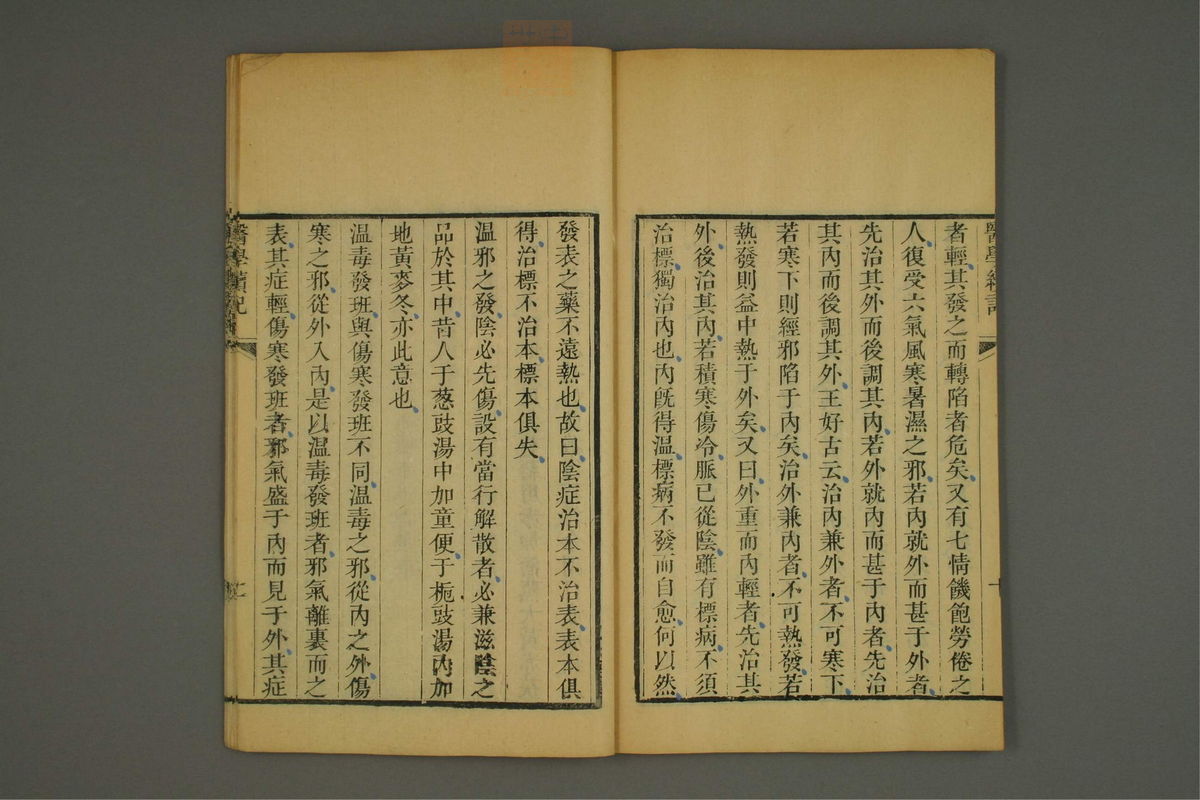 者輕其發之而轉陷者危矣又有七情饑飽勞倦之
人復受六氣風寒暑濕之邪若內就外而甚于外者
先治其外而後調其內若外就內而甚于內者先治
其內而後調其外王好古云治內兼外者不可寒下
若寒下則經邪陷于內矣治外兼內者不可熱發若
熱發則益中熱于外矣又曰外重而內輕者先治其
外後治其內若積寒傷冷脈已從陰雖有標病不須
治標獨治內也內旣得温標病不發而自愈何以然
發表之藥不遠熱也故曰陰症治本不治表表本俱
得治標不治本標本俱失
温邪之發陰必先傷設有當行解散者必兼滋陰之
品於其中昔人于葱豉湯中加童便于梔豉湯內加
地黃麥冬亦此意也
温毒發班與傷寒發班不同温毒之邪從內之外傷
寒之邪從外入內是以温毒發班者邪氣離裏而之
表其症輕傷寒發班者邪氣盛于內而見于外其症
醫學